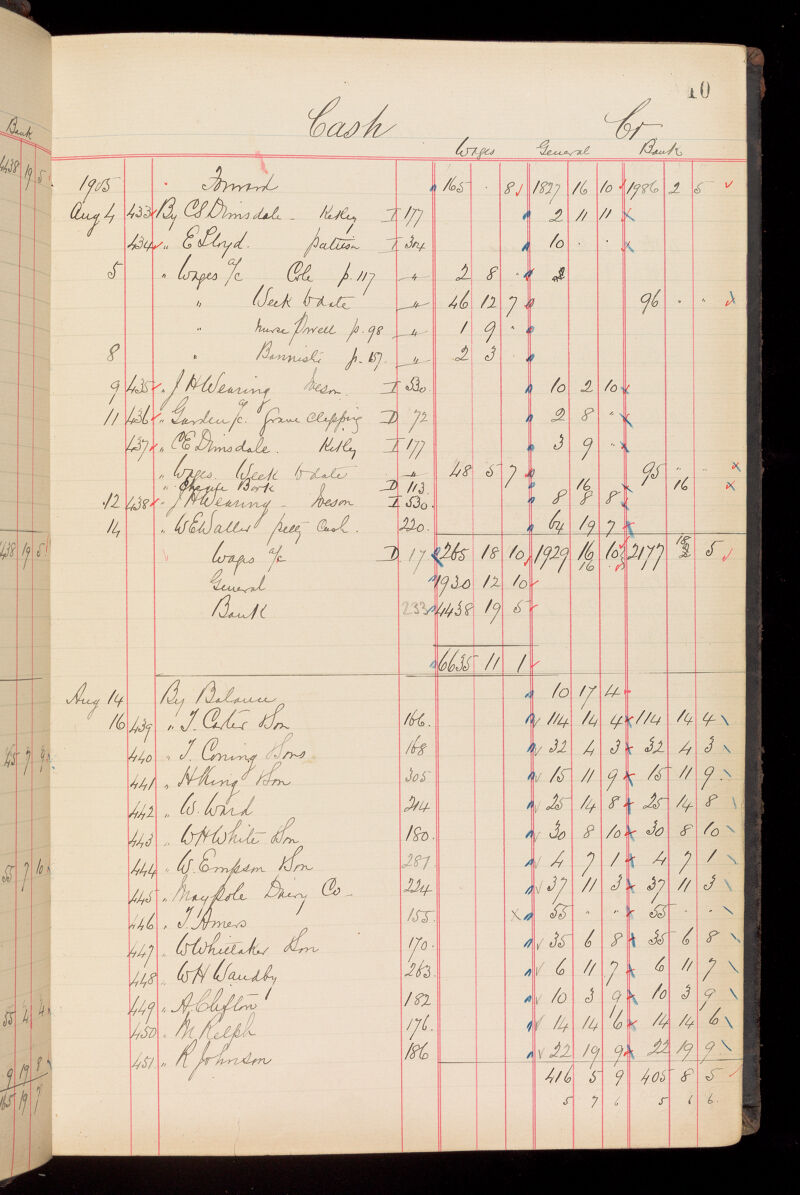 10
Cash Cr
Wages General Bank
1905 Forward 165 . 8 1827 16 10 1986 2 5
Aug 4 433 By CE Dimsdale - Ketley I 177 2 11 11
434 " E Lloyd. pattison I 304 10 . .
5 " Wages a/c Cole p. 117 " 2 8 .
" Week to date " 46 12 7 96 . "
" Nurse Powell p. 98 " 1 9 "
8 " Bannister p. 157 " 2 3 .
9 435 " J H Wearing Iveson I 530 10 2 10
11 436 " Garden a/c. Grave Clipping D 72 2 8 "
437 " CE Dimsdale. Ketley I 177 3 9 "
" Wages. Week to date " 48 5 7 95 " "
" Cheque Book D 113 16 16
12 438 " J H Wearing - Iveson I 530. 8 8 8
14 " W E Waller petty Cash. 220. 64 19 7
Wages a/c D 17 265 18 10 1929 16 10 2177 18 5
16
General 1930 12 10
Bank 233 4438 19 5
6635 11 1
Aug 14 By Balance 10 17 4
16 439 " T. Carter & Son 166. 114 14 4 114 14 4
440 " T. Coning & Sons 168 32 4 3 32 4 3
441 " H King & Son 305 15 11 9 15 11 9
442 " W. Ward 214 25 14 8 25 14 8
443 " W H White & Son 180. 30 8 10 30 8 10
444 " W. Empson & Son 287 4 7 1 4 7 1
445 " Maypole Dairy Co - 224 37 11 3 37 11 3
446 " T. Amers 155. 55 " " 55 . .
447 " W Whitaker & Son 170. 35 6 8 35 6 8
448 " W H Waudby 263. 6 11 7 6 11 7
449 " A. Clifton 182 10 3 9 10 3 9
450 " M Relph 176. 14 14 6 14 14 6
451 " R Johnson 186 22 19 9 22 19 9
416 5 9 405 8 5
5 7 6 5 6 6
Bank
4438 19 5
438 19 5
45 7 9
55 7 10
55 4 4
9 19 8
165 19 7